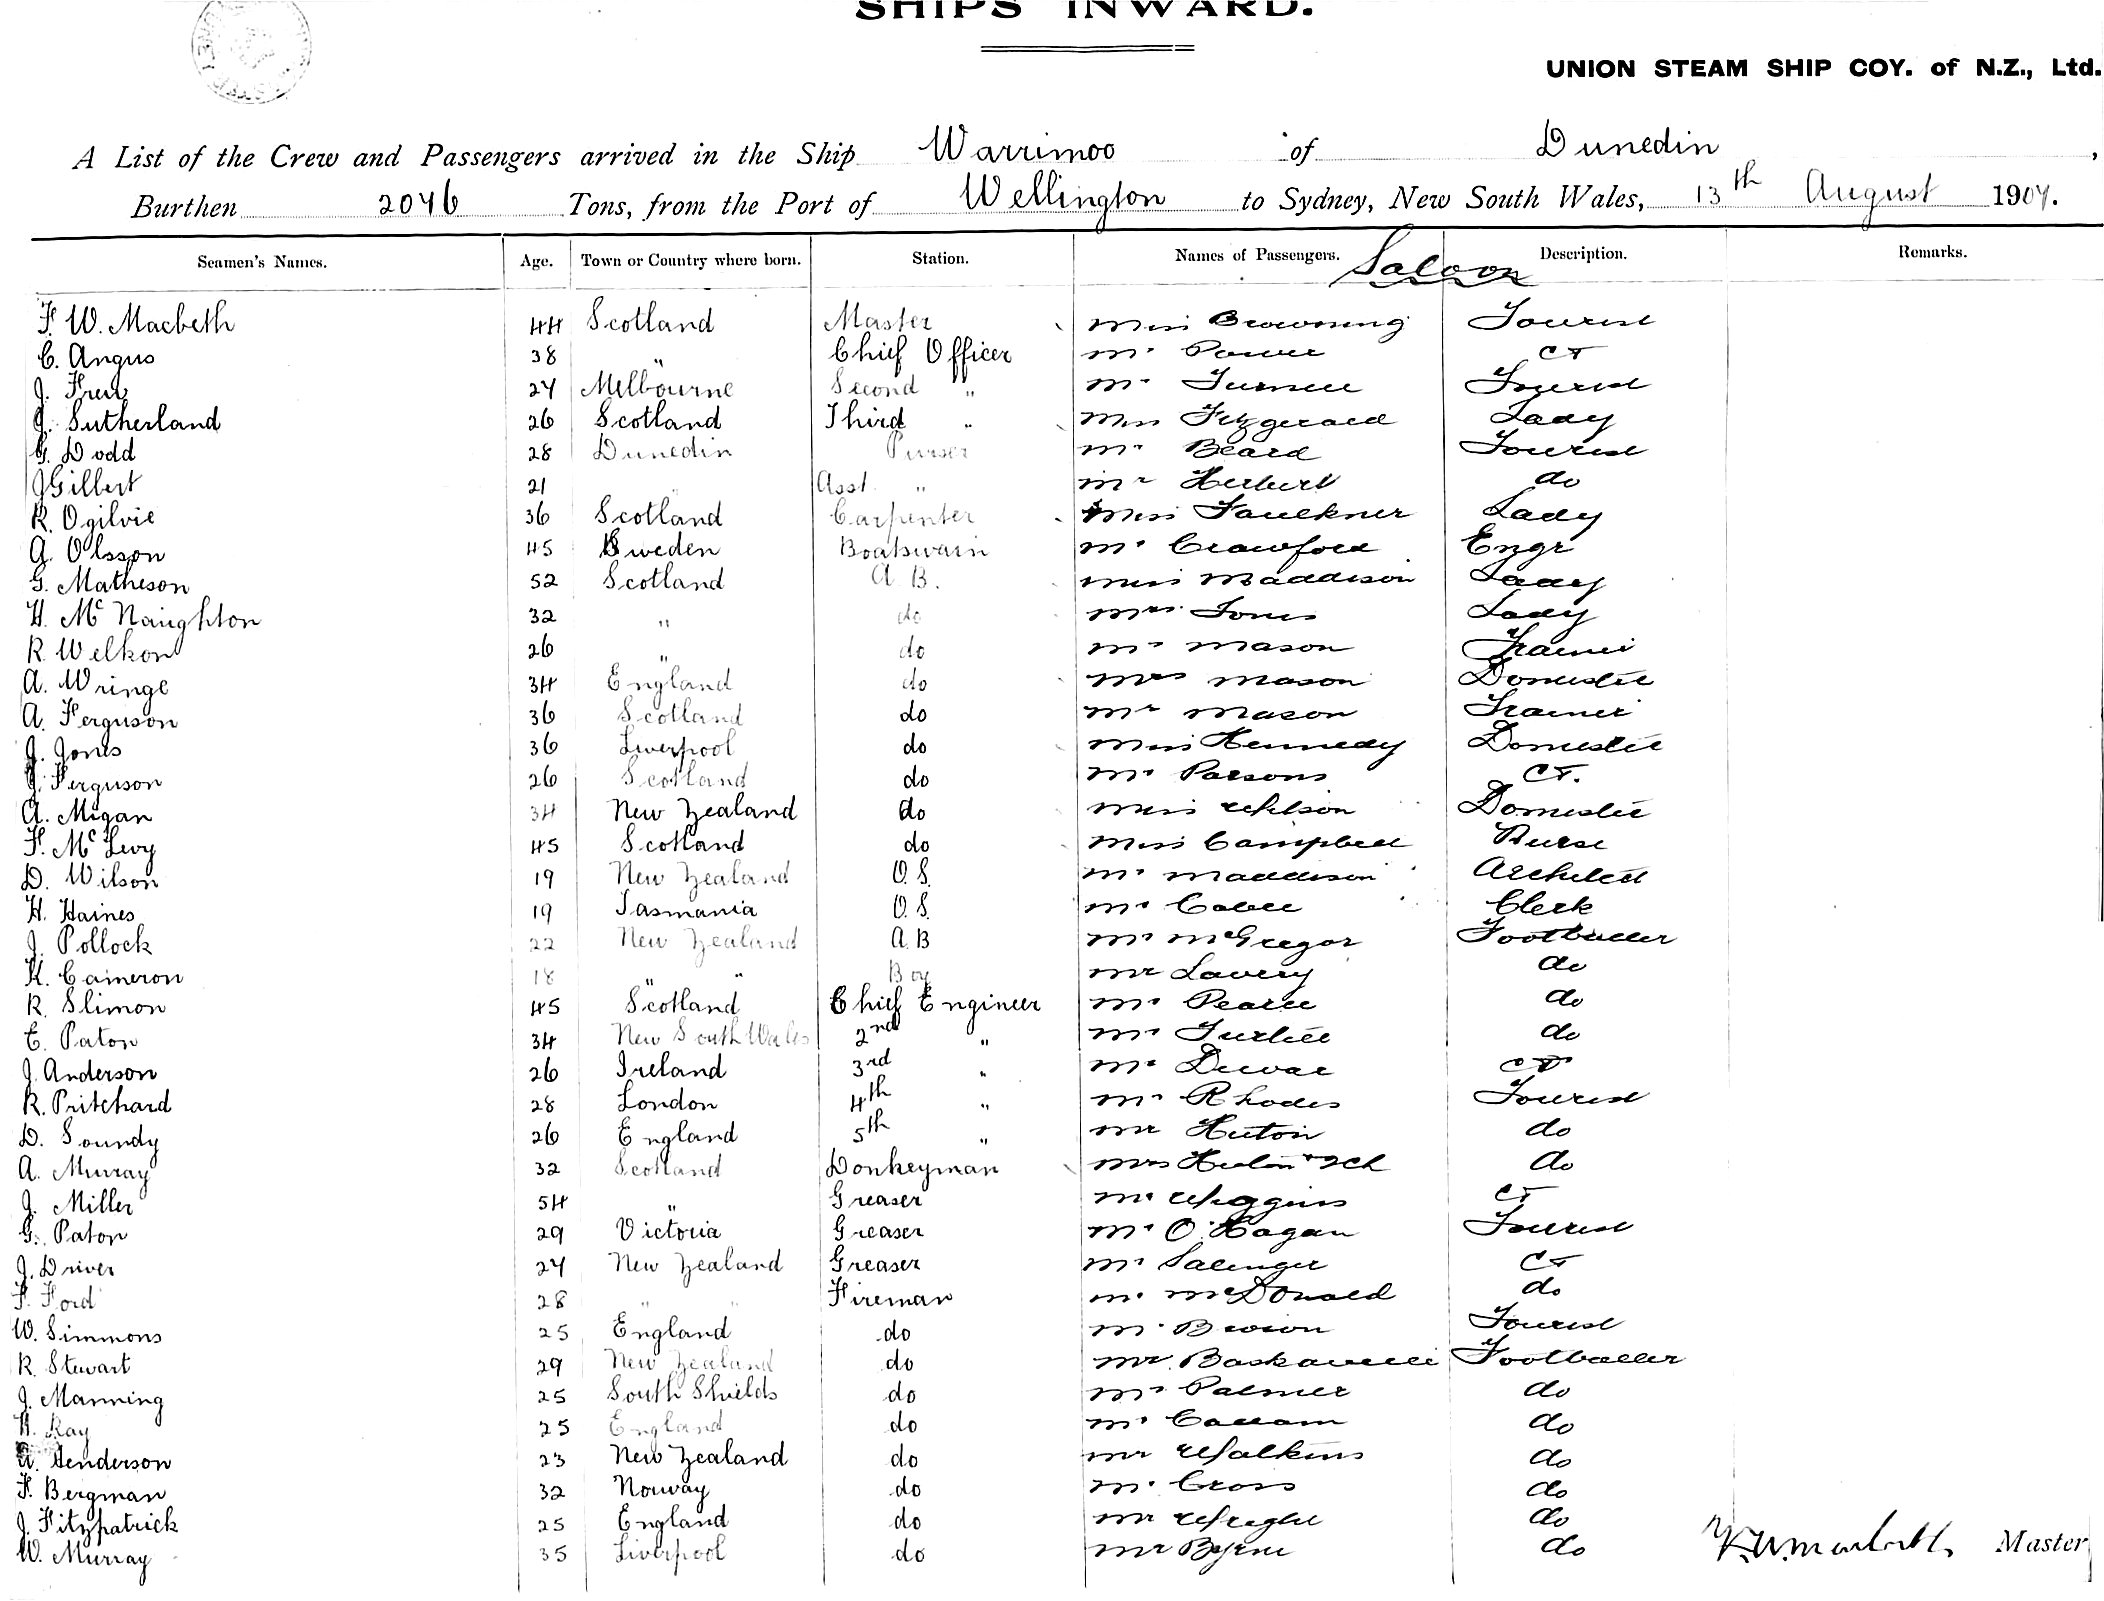 SHIPS INWARD.
UNION STEAM SHIP COY. of N.Z., Ltd.
A List of the Crew and Passengers arrived in the Ship Warrimoo of Dunedin,
Burthen 2076 Tons, from the Port of Wellington to Sydney, New South Wales, 13th August 1907.
Seamen's Names. Age. Town or Country where born. Station. Names of Passengers. Saloon Description. Remarks.
F. W. Macbeth 44 Scotland Master Miss Browning Tourist
C. Angus 38 " Chief Officer Mr Power CT
J. Frew 27 Melbourne Second " Mr Turner Tourist
J. Sutherland 26 Scotland Third " Fitzgerald Lady
G. Dodd 28 Dunedin Purser Mr Beard Tourist
J Gilbert 21 " Asst " Mr Herbert do
R. Ogilvie 36 Scotland Carpenter Miss Faulkner Lady
A. Olsson 45 Sweden Boatswain Mr Crawford Engr
G. Matheson 52 Scotland A. B. Miss Maddison Lady
H. Mc Naughton 32 " do Mrs Jones Lady
R. Welkon 26 " do Mr Mason Trainer
A. Wringe 34 England do Mrs Mason Domestic
A. Ferguson 36 Scotland do Mr Mason Trainer
J. Jones 36 Liverpool do Miss Kennedy Domestic
J. Ferguson 26 Scotland do Mr Parsons CT.
A. Migan 34 New Zealand do Miss Wilson Domestic
F. Mc Levy 45 Scotland do Miss Campbell Nurse
D. Wilson 19 New Zealand O. S. Mr Maddison Architect
H. Haines 19 Tasmania O. S. Mr Clerk
J. Pollock 22 New Zealand A. B Mr McGregor Footballer
K. Cameron 18 " " Boy Mr Lavery do
R. Slimon 45 Scotland Chief Engineer Mr Pearce do
E. Paton 34 New South Wales 2nd " Mr Turtill do
J. Anderson 26 Ireland 3rd " Mr Dewar CT
R. Pritchard 28 London 4th " Mr Rhodes Tourist
D. Soundy 26 England 5th " Mr Huton do
A. Murray 32 Scotland Donkeyman Mrs Huton + 2ch do
J. Miller 54 " Greaser Mr Wiggins CT
G. Paton 29 Victoria Greaser Mr O'Hagan Tourist
J. Driver 27 New Zealand Greaser Mr Salinger CT
F. Ford 28 " " Fireman Mr McDonald do
W. Simmons 25 England do Mr Tourist
R. Stewart 29 New Zealand do Mr Baskerville Footballer
J. Manning 25 South Shields do Mr Palmer do
H. Ray 25 England do Mr Callam do
A. Henderson 23 New Zealand do Mr Watkins do
F. Bergman 32 Norway do Mr Cross do
J. Fitzpatrick 25 England do Mr Wright do
W. Murray 35 Liverpool do Mr Byrne do F. W. Macbeth Master